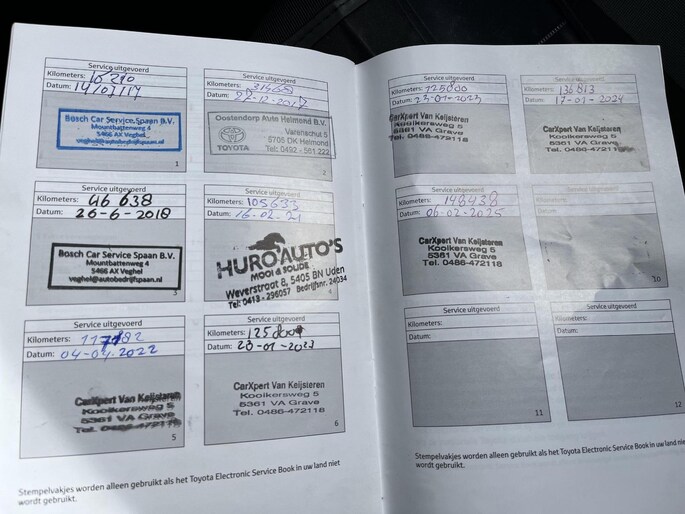 Service uitgevoerd
Kilometers: 16 210
Datum: 14/03/17
Bosch Car Service Spaan B.V.
Mountbattenweg 4
5466 AX Veghel
veghel@autobedrijfspaan.nl
1
Service uitgevoerd
Kilometers: 31568
Datum: 22-12-2017
Oostendorp Auto Helmond B.V.
Varenschut 5
5705 DK Helmond
Tel: 0492 - 561 222
TOYOTA
2
Service uitgevoerd
Kilometers: 46 638
Datum: 26-6-2018
Bosch Car Service Spaan B.V.
Mountbattenweg 4
5466 AX Veghel
veghel@autobedrijfspaan.nl
3
Service uitgevoerd
Kilometers: 105633
Datum: 16-02-21
HURO AUTO'S
MOOI & SOLIDE
Weverstraat 8, 5405 BN Uden
Tel: 0413 - 296057 Bedrijfsnr. 24034
Service uitgevoerd
Kilometers:
Datum: 04-04-2022
CarXpert Van Keijsteren
Kooikersweg 5
5361 VA Grave
Tel. 0486-472118
5
Service uitgevoerd
Kilometers:
Datum: 23-01-2023
CarXpert Van Keijsteren
Kooikersweg 5
5361 VA Grave
Tel. 0486-472118
6
Stempelvakjes worden alleen gebruikt als het Toyota Electronic Service Book in uw land niet
wordt gebruikt.
Service uitgevoerd
Kilometers: 125000
Datum: 23-01-2023
CarXpert Van Keijsteren
Kooikersweg 5
5361 VA Grave
Tel. 0486-472118
Service uitgevoerd
Kilometers: 136813
Datum: 17-01-2024
CarXpert Van Keijsteren
Kooikersweg 5
5361 VA Grave
Tel. 0486-472118
Service uitgevoerd
Kilometers: 148438
Datum: 06-02-2025
CarXpert Van Keijsteren
Kooikersweg 5
5361 VA Grave
Tel. 0486-472118
Service uitgevoerd
Kilometers:
Datum:
10
Service uitgevoerd
Kilometers:
Datum:
11
Service uitgevoerd
Kilometers:
Datum:
12
Stempelvakjes worden alleen gebruikt als het Toyota Electronic Service Book in uw land niet
wordt gebruikt.